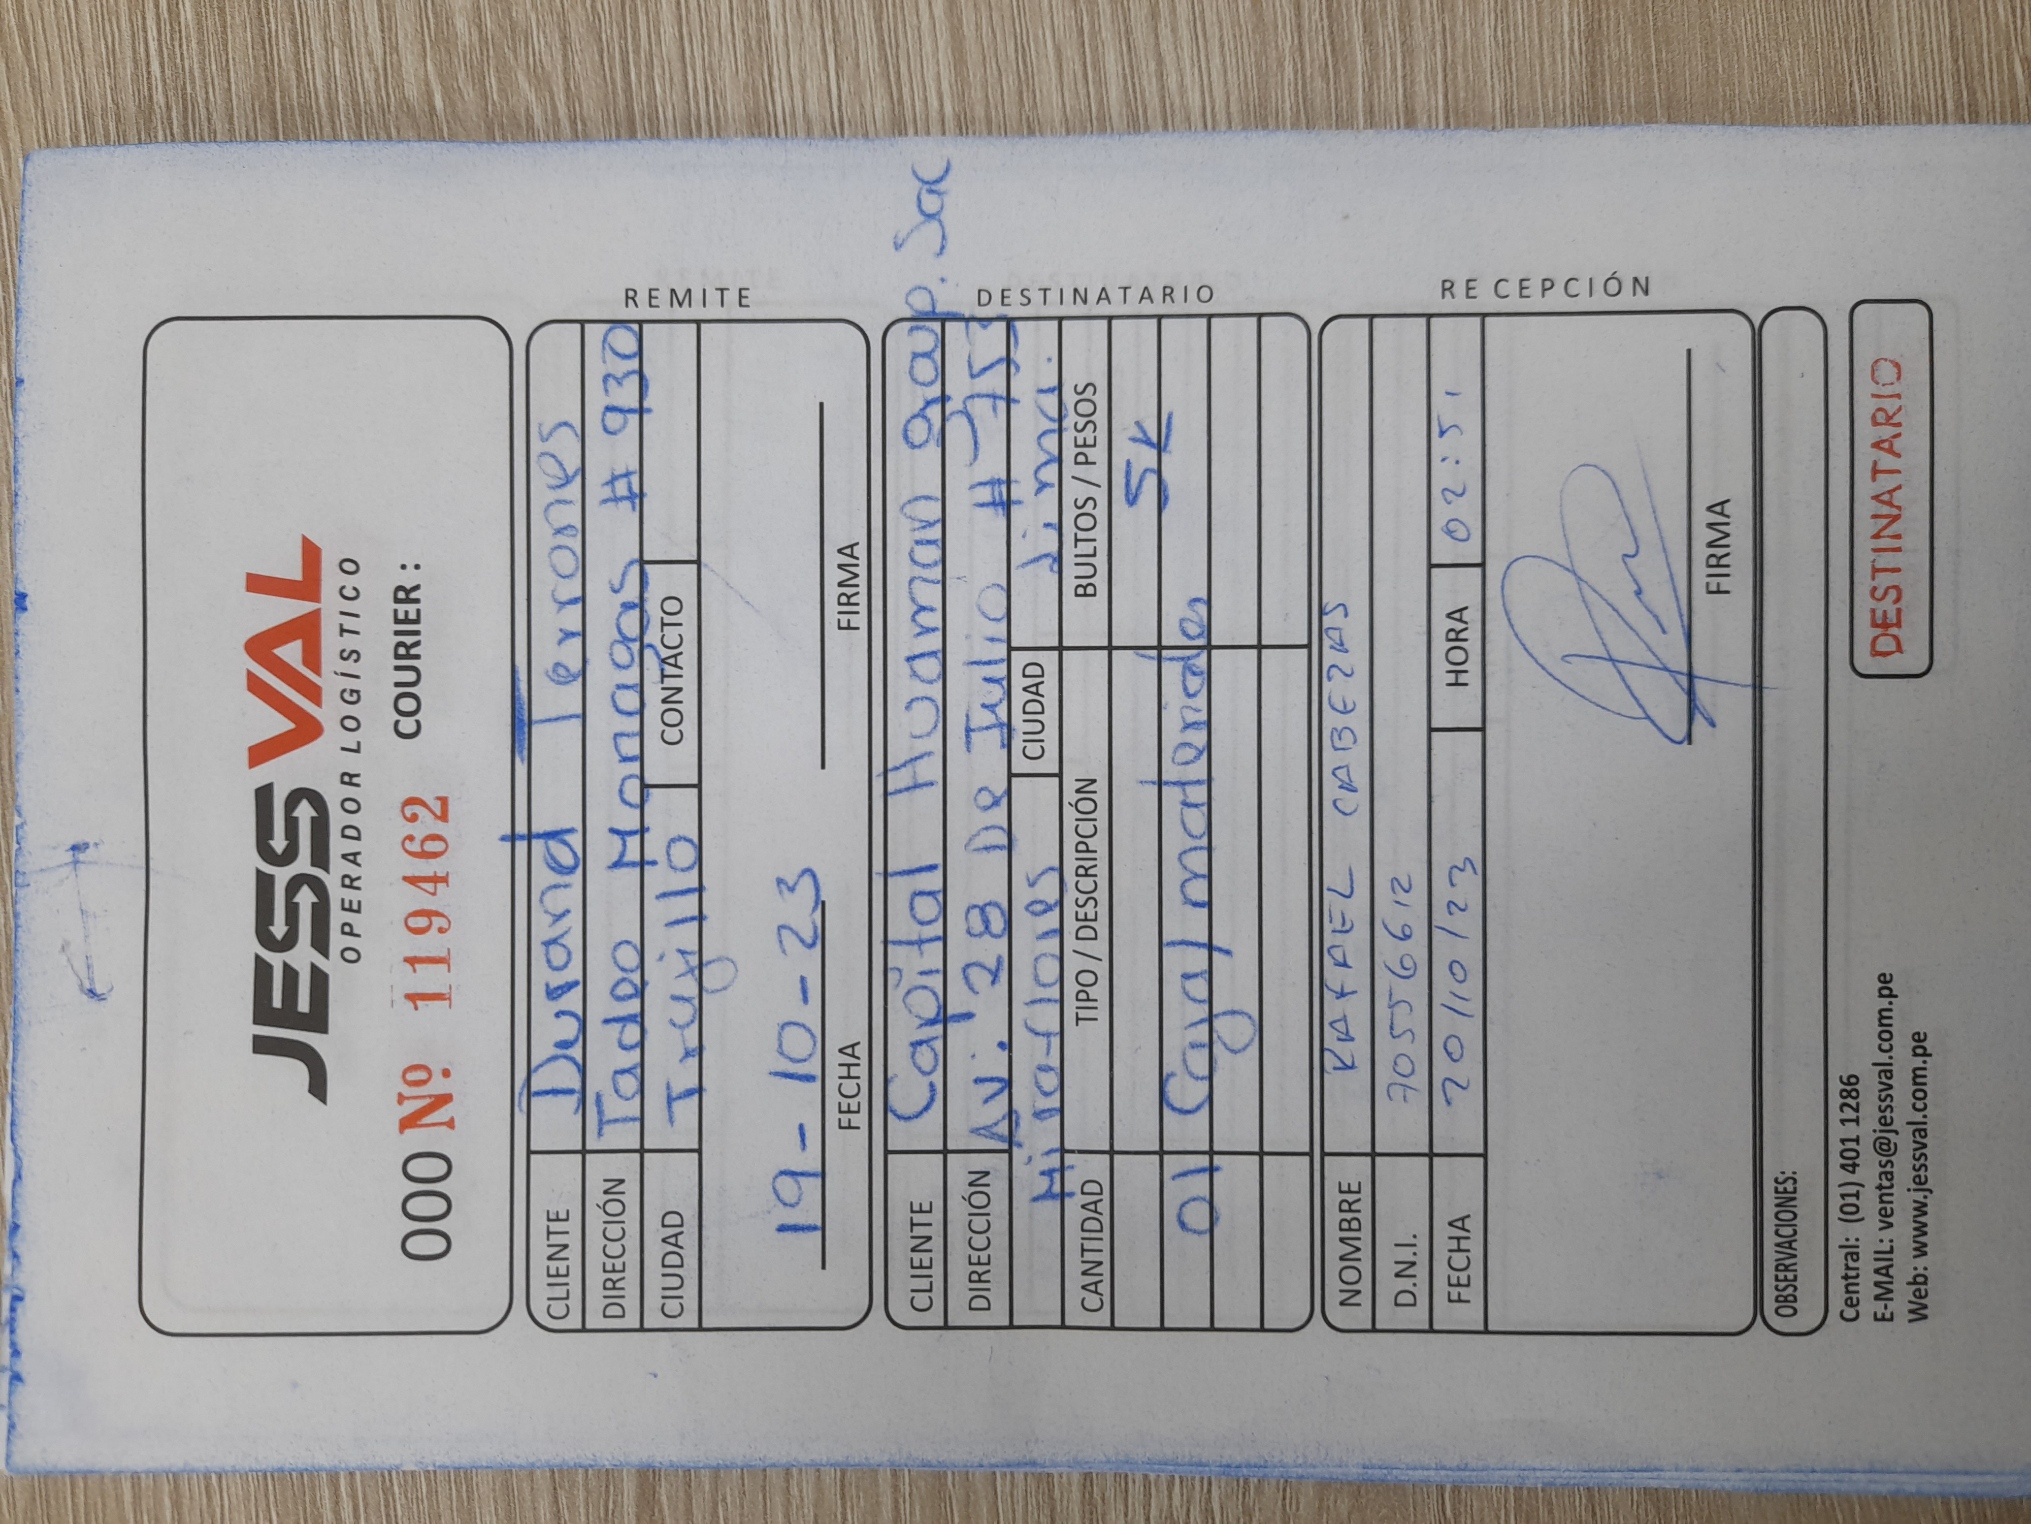 JESSVAL
OPERADOR LOGÍSTICO
000 Nº 119462 COURIER :
CLIENTE Durand Terrones
DIRECCIÓN Tadeo Monagas # 930
CIUDAD Trujillo CONTACTO
REMITE
19-10-23
FECHA FIRMA
CLIENTE Capital Huaman group. Sac
DIRECCIÓN Av: 28 De Julio # 753
Miraflores CIUDAD Lima.
DESTINATARIO
CANTIDAD TIPO / DESCRIPCIÓN BULTOS / PESOS
5K
01 Caja/ materiales
NOMBRE RAFAEL CABEZAS
D.N.I. 70556612
FECHA 20/10/23 HORA 02:51
RECEPCIÓN
FIRMA
OBSERVACIONES:
Central: (01) 401 1286
E-MAIL: ventas@jessval.com.pe
Web: www.jessval.com.pe
DESTINATARIO